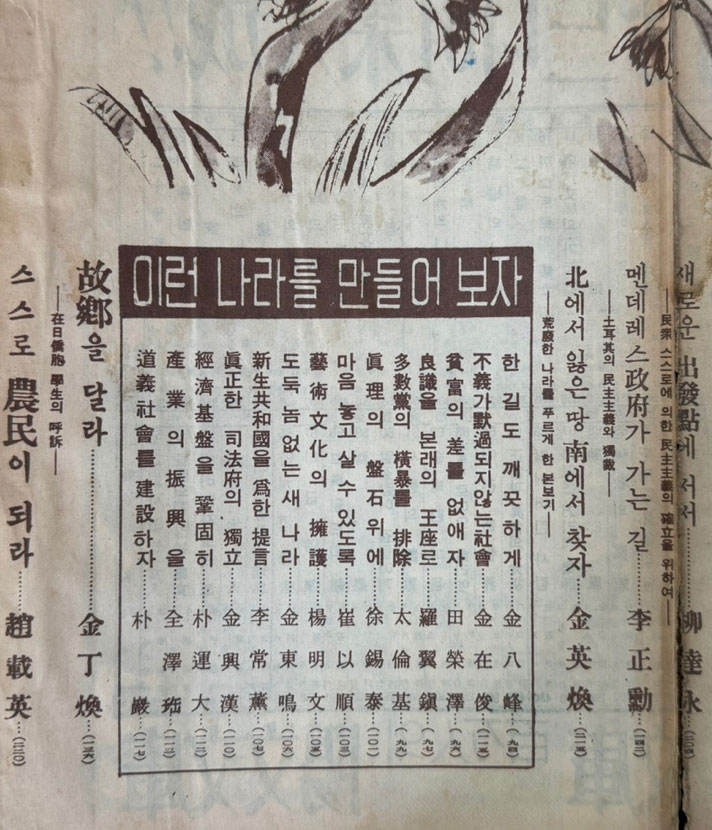 새로운 出發點에 서서……柳達永……(二〇四)
——民衆 스스로에 의한 民主主義의 確立을 위하여——
멘데레스政府가 가는 길……李正勳……(一四二)
——土耳其의 民主主義와 獨裁——
北에서 잃은 땅 南에서 찾자……金英煥……(二一五)
——荒廢한 나라를 푸르게 한 본보기——
이런 나라를 만들어 보자
한 길도 깨끗하게……金八峰……(九四)
不義가 默過되지않는 社會……金在俊……(二一五)
貧富의 差를 없애자……田榮澤……(九六)
良識을 본래의 王座로……羅翼鎭……(九七)
多數黨의 橫暴를 排除……太倫基……(九九)
眞理의 盤石위에……徐錫泰……(一〇一)
마음 놓고 살 수 있도록……崔以順……(一〇三)
藝術文化의 擁護……楊明文……(一〇五)
도둑 놈 없는 새 나라……金東鳴……(一〇六)
新生共和國을 爲한 提言……李常薰……(一〇七)
眞正한 司法府의 獨立……金興漢……(一一〇)
經濟基盤을 鞏固히……朴運大……(一一二)
產業의 振興을……全澤珤……(一一三)
道義社會를 建設하자……朴巖……(一一七)
故鄕을 달라……金丁煥……(一二六)
——在日僑胞 學生의 呼訴——
스스로 農民이 되라……趙載英……(二二〇)